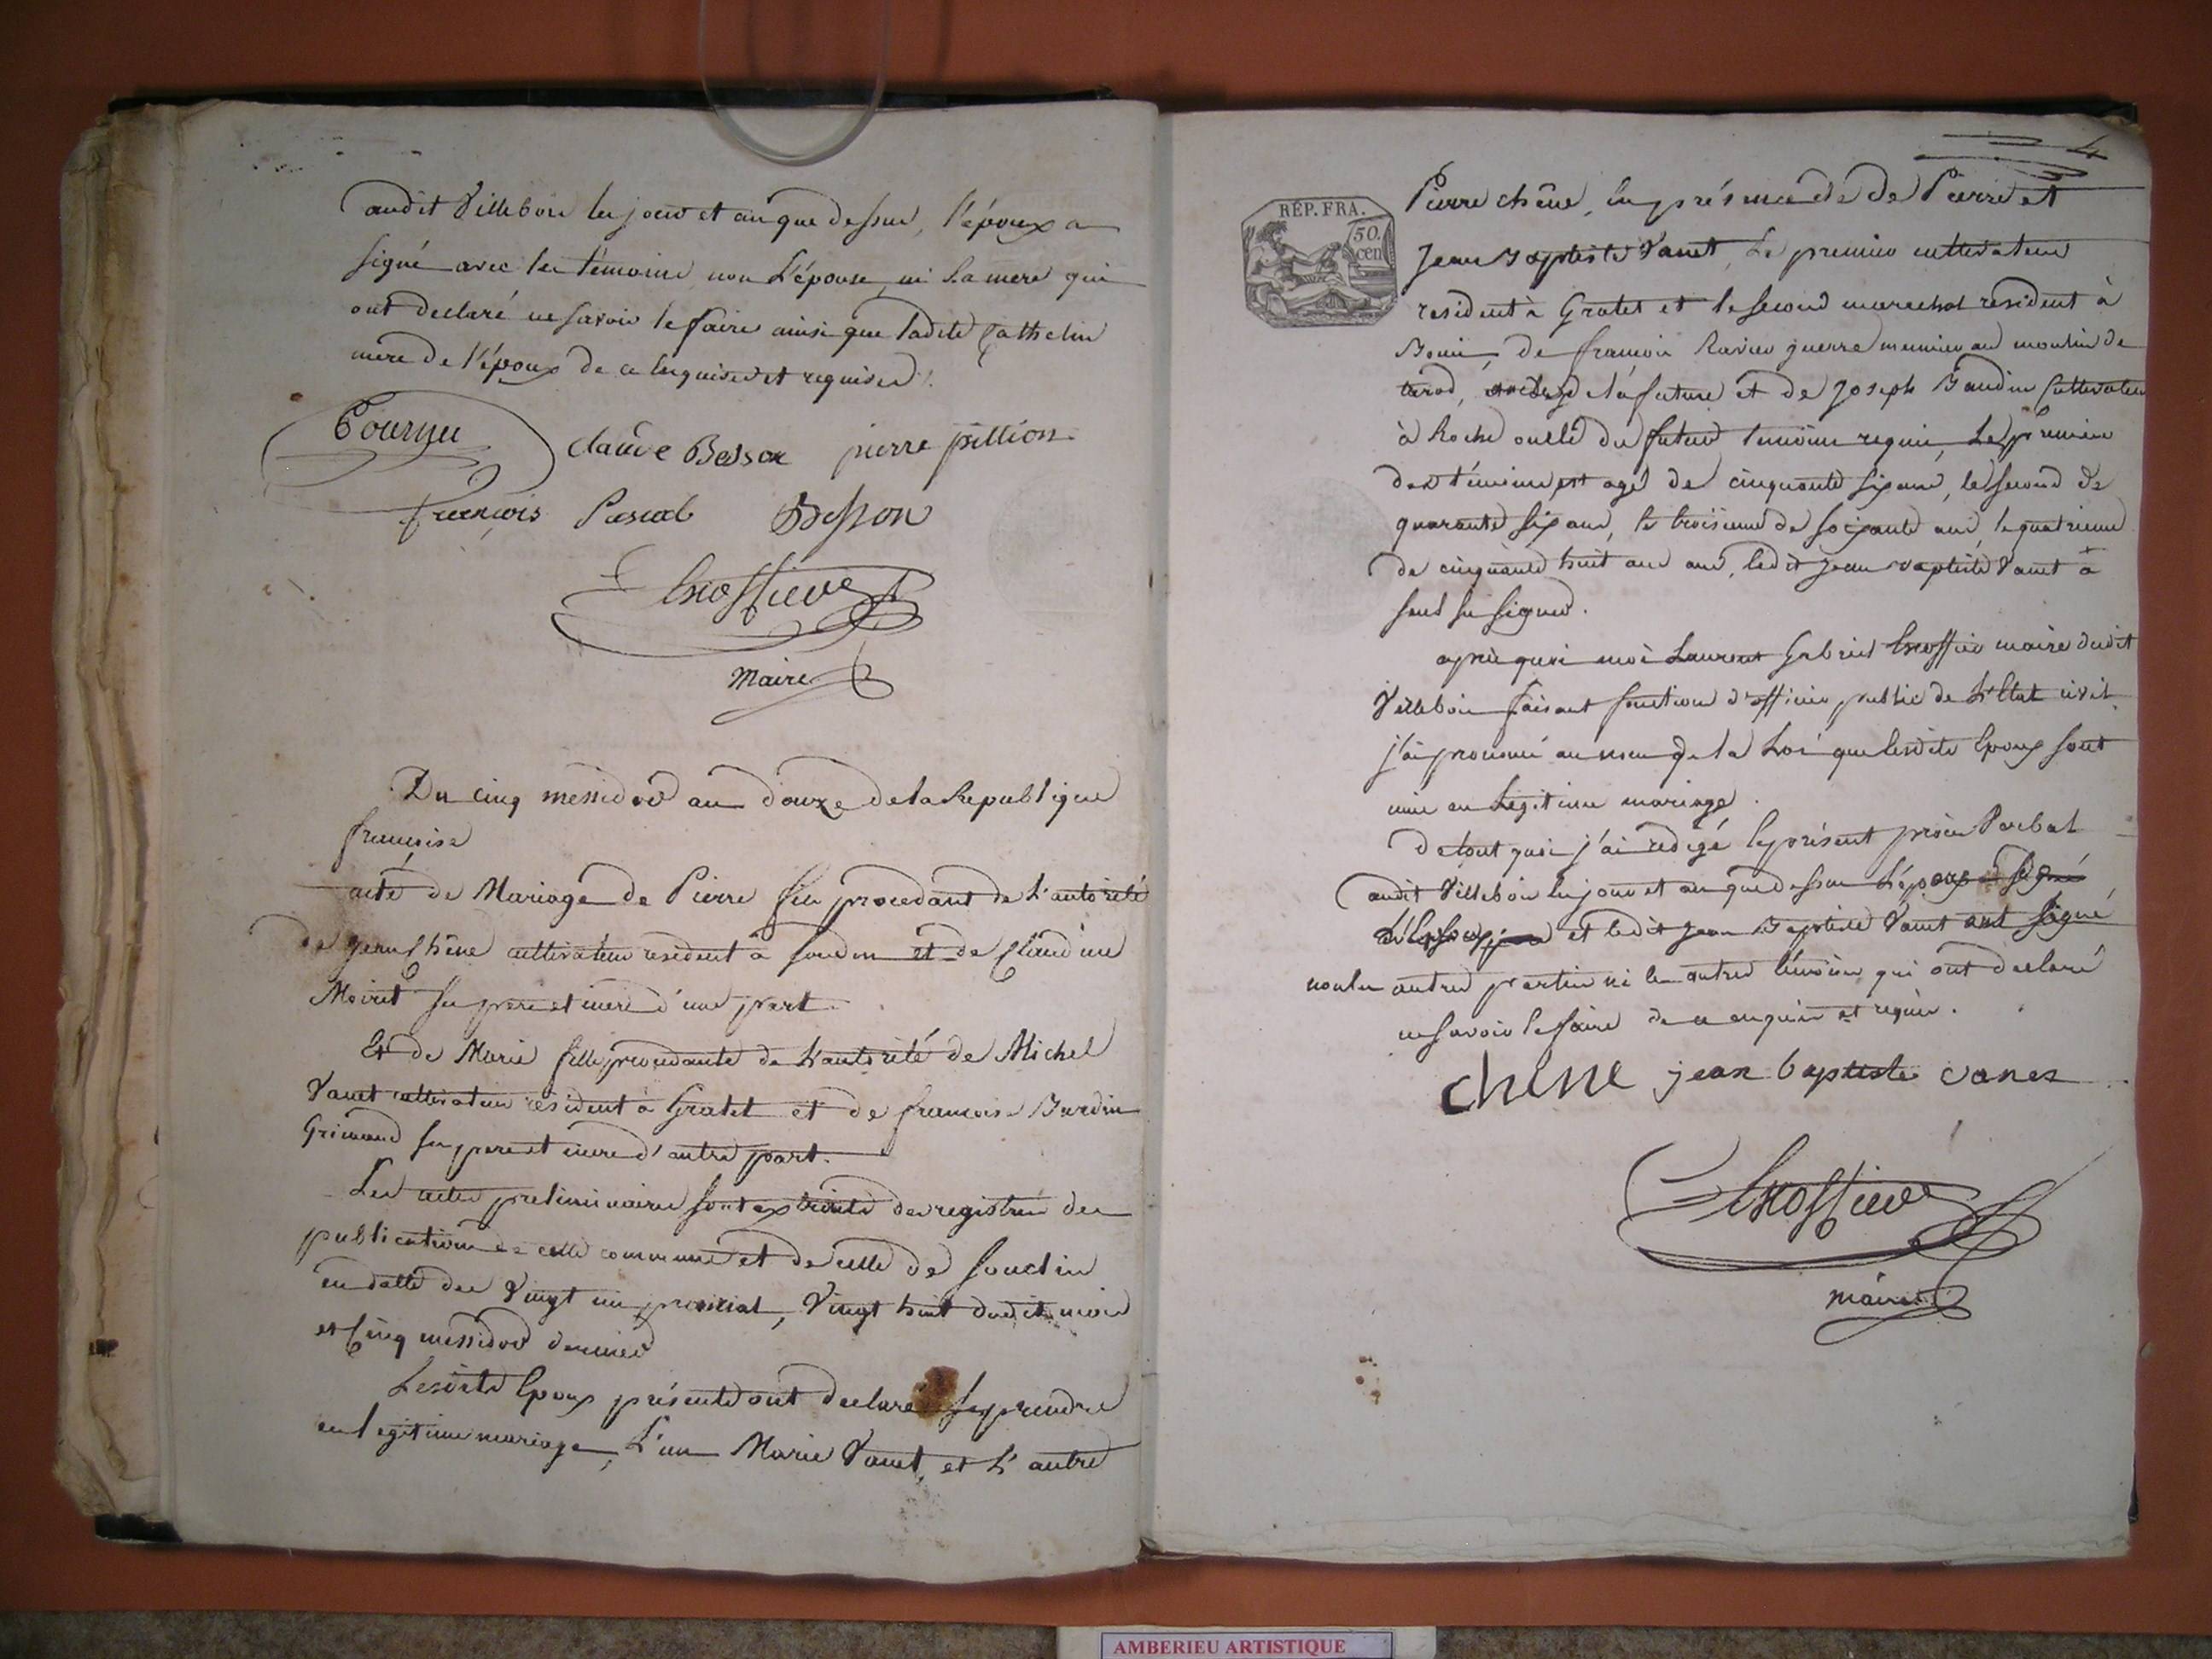 audit Villebois les jour et an que dessus, l'époux a
signé avec les témoins non L'épouse, ni sa mere qui
ont declaré ne savoir le faire ainsi que ladite Cathelin
mere de l'époux de ce enquises et requises.
Tournu
claude Besson pierre pillion
francois Pascal Besson
Maire
Du cinq messidor an douze de la Republique
francoise
acte de Mariage de Pierre fils procedant de L'autorité
de Jean Chêne cultivateur resident à Soudon et de Claudine
Moiret ses pere et mere d'une part.
Et de Marie fille procedante de L'autorité de Michel
Vanet cultivateur résident à Gratet et de francoise Burdin
Grimaud ses pere et mere d'autre part.
Les actes preliminaires sont extraits des registres des
publications de celle commune et de celle de Souclin
en datte des Vingt un prairial, Vingt huit dudit mois
et Cinq messidor dernier
Lesdits Epoux présents ont declaré se prendre
en legitime mariage, L'un Marie Vanet, et L'autre
4
RÉP. FRA.
50. cen
Pierre chêne, en présence de de Pierre et
Jean Baptiste Vanet, Le premier cultivateur
resident à Gratet et le second marechal résident à
de francois Ravier guerre meunier au moulin de
de la future et de Joseph Baudin Cultivateur
à Roche oncle du futur temoins requis, Le premier
des témoins est agé de cinquante six ans, le second de
quarante six ans, le troisieme de soixante ans, le quatrieme
de cinquante huit ans ans, ledit Jean Baptiste Vanet a
seul su signer.
après quoi moi Laurent Gabriel maire dudit
Villebois faisant fonctions d'officier public de L'Etat civil
j'ai prononcé au nom de la Loi que lesdits Epoux sont
unis en Légitime mariage.
De tout quoi j'ai redigé le présent procès Verbal
audit Villebois les jour et an que dessus L'époux a signé
et ledit Jean Baptiste Vanet ont signé
non les autres parties ni les autres témoins qui ont declaré
ne savoir le faire de ce enquis et requis.
chene jean baptiste vanes
maire
AMBERIEU ARTISTIQUE